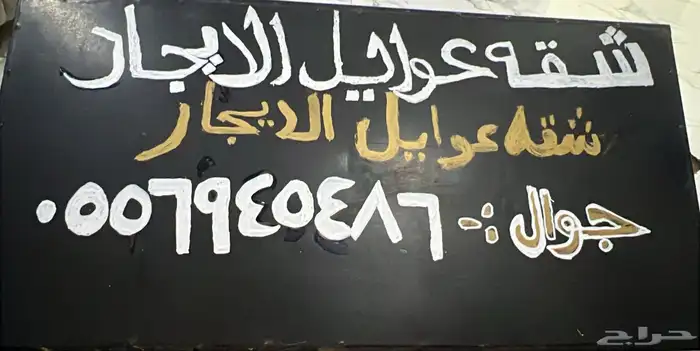 شقه عوايل الايجار
شقه عوايل الايجار
جوال :- ٠٥٥٦٩٤٥٤٨٦
حراج